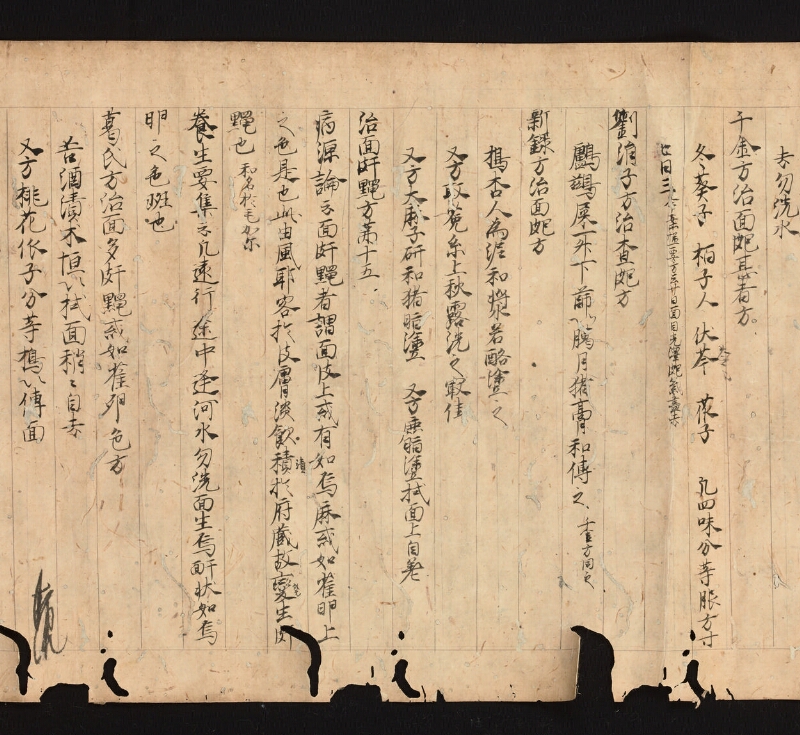 去勿洗水
千金方治面皰甚者方
冬葵子 柏子人 伏苓 苽子 凡四味分等服方寸
匕日三
劉涓子方治查皰方
鸕鷀屎一升下篩以臈月猪膏和傅之
新録方治面皰方
擣杏人為泥和漿若酪塗之
又方取菟糸上秋露洗之取佳
又方大麻子研和猪脂塗 又方熊脂塗拭面上自差
治面皯䵳方第十五
病源論云面皯䵳者謂面皮上或有如烏麻或如雀卵上
之色是也此由風耶客於皮膚淡飲漬積於府蔵故變生皯
䵳也
養生要集云凡遠行途中逢河水勿洗面生烏皯状如烏
卵之色斑也
葛氏方治面多皯䵳或如雀卵色方
苦酒漬朮恒以拭面稍〻自去
又方桃花依子分等擣以傅面